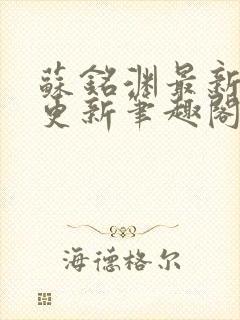 蘇銘渊最新
更新筆趣閣
海德格尔